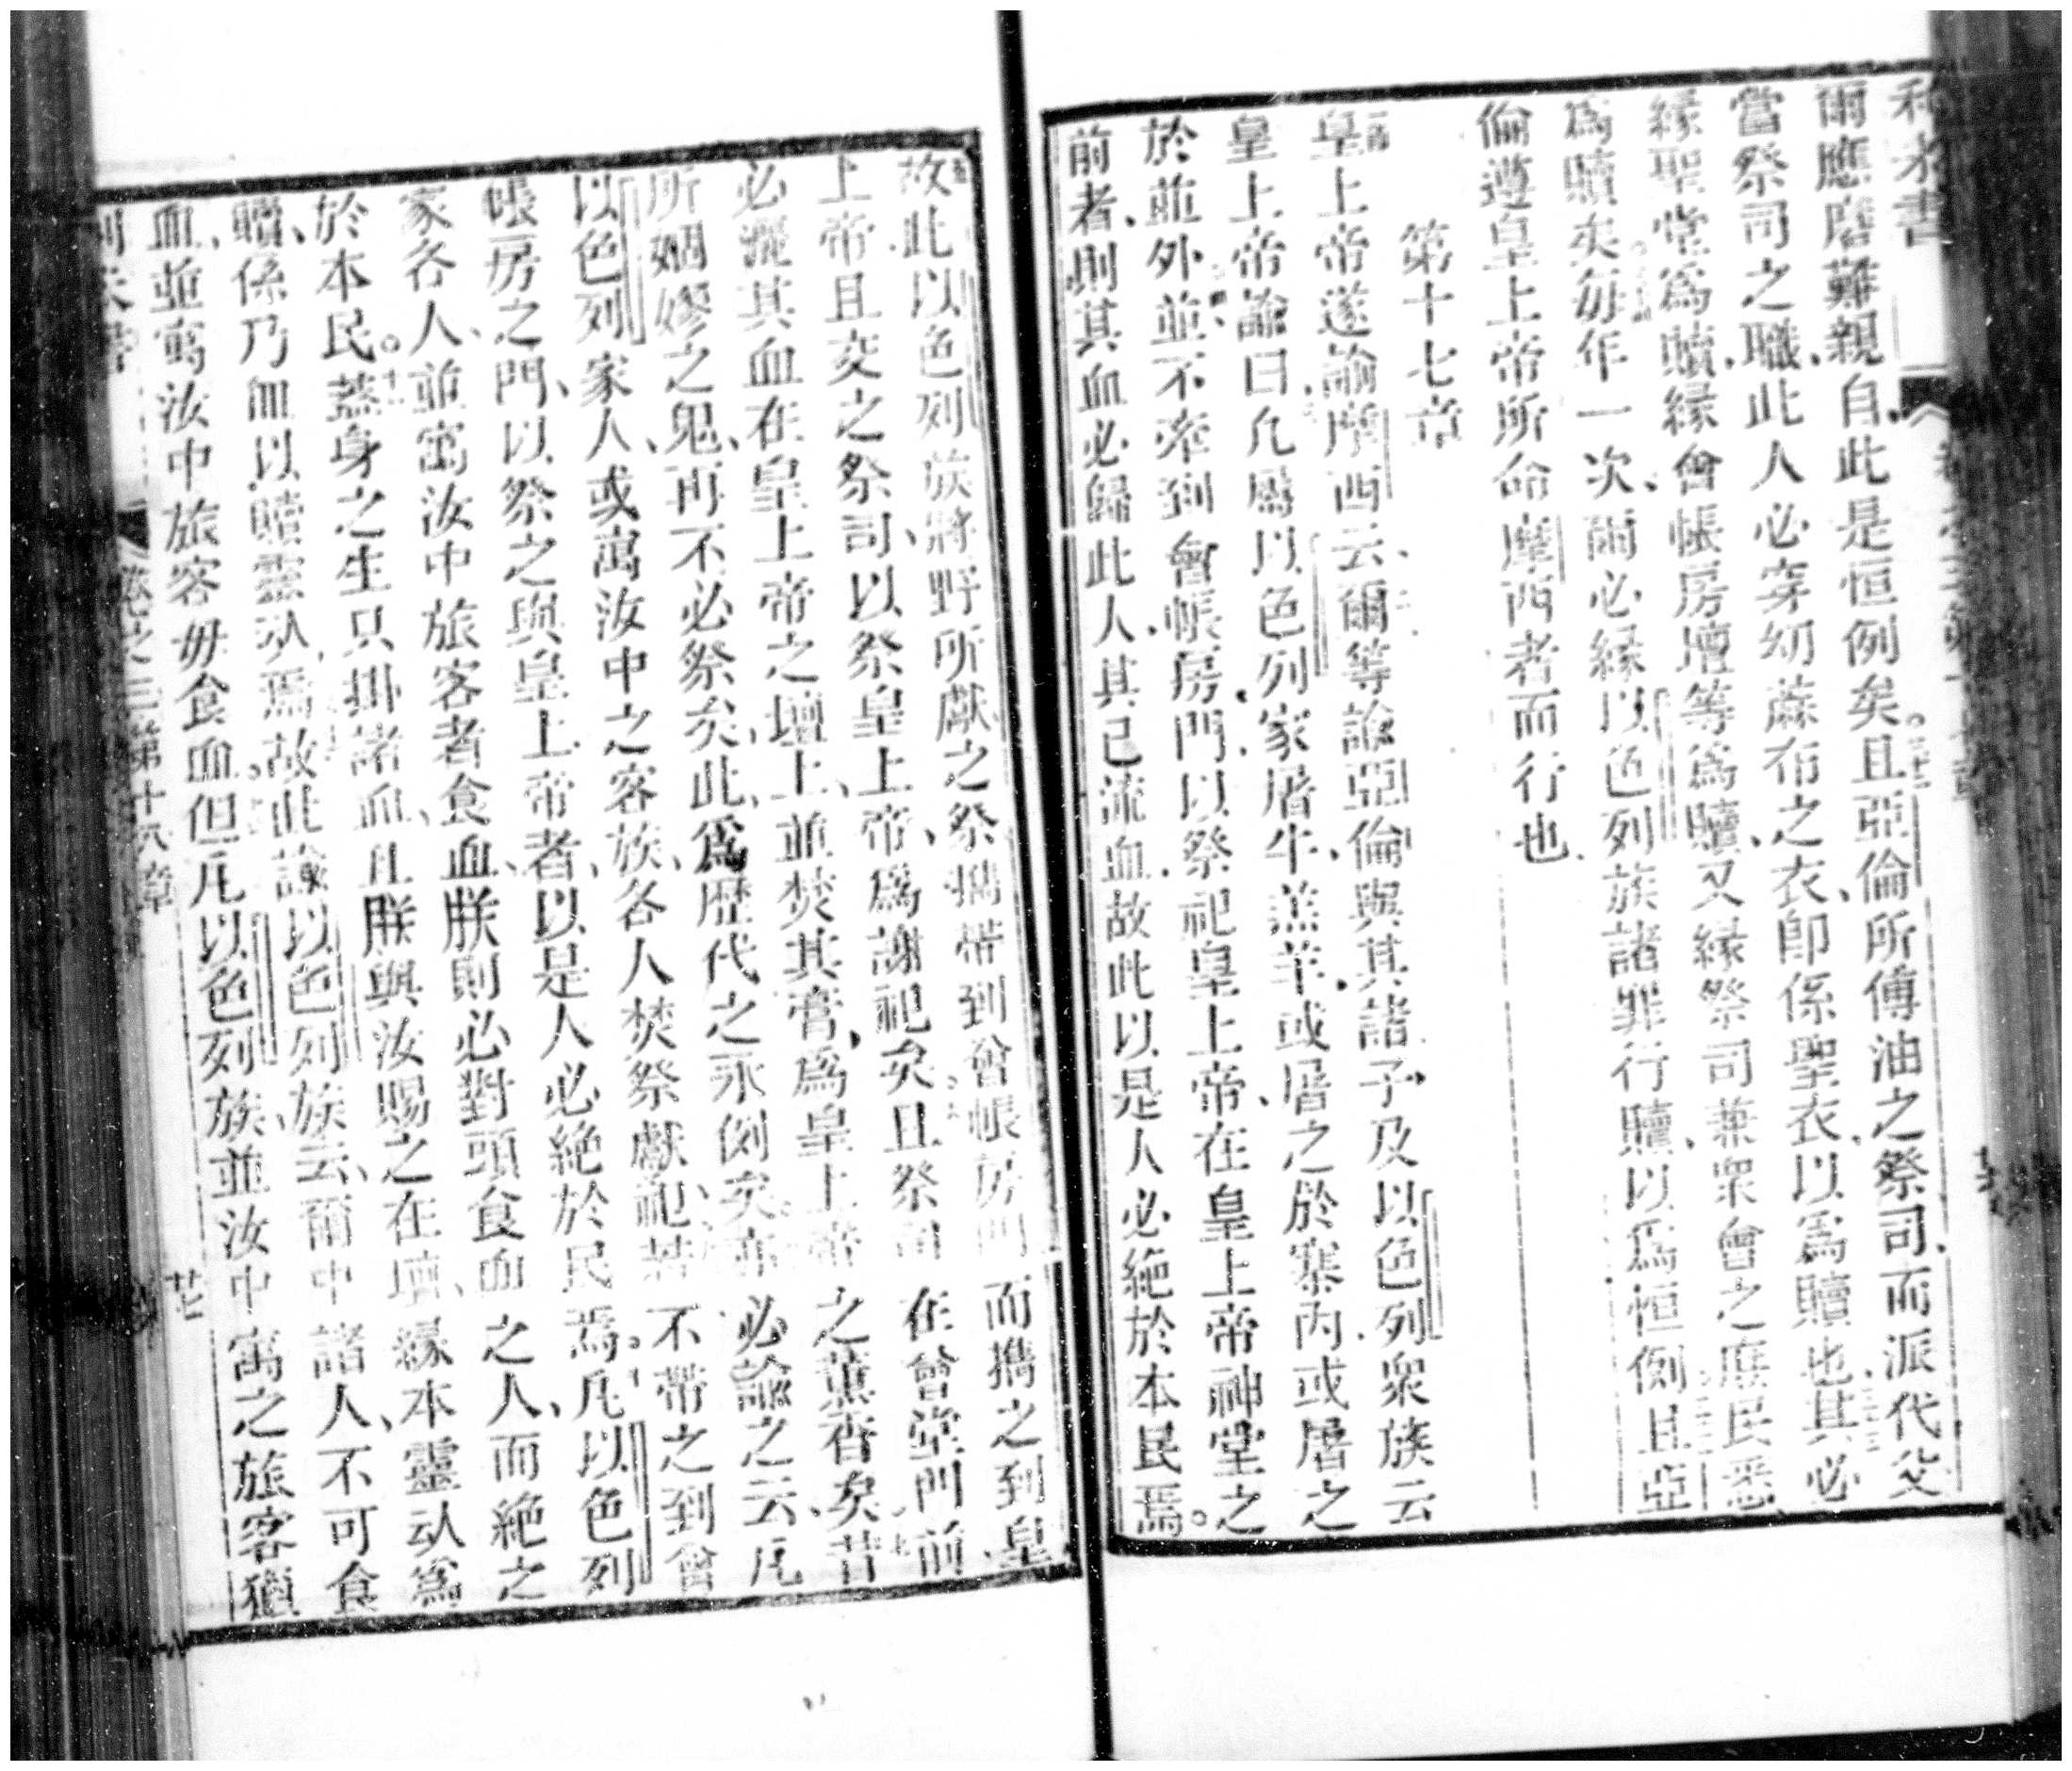 爾應磨難親自此是恒例矣。且亞倫所傅油之祭司、而派代父
當祭司之職、此人必穿幼蔴布之衣、卽係聖衣、以爲贖也、其必
縁聖堂爲贖、縁會帳房壇等爲贖、又縁祭司兼衆會之庶民悉
爲贖矣。每年一次、爾必縁以色列族諸罪行贖、以爲恒例、且亞
倫遵皇上帝所命摩西者而行也
第十七章
皇上帝遂諭摩西云、爾等諭亞倫與其諸子、及以色列衆族云
皇上帝諭曰、凡爲以色列家屠牛、羔羊、或屠之於寨內、或屠之
於並外、並不牽到會帳房門、以祭祀皇上帝、在皇上帝神堂之
前者、則其血必歸此人、其已流血、故此以是人必絶於本民焉。
故此以色列族、將野所獻之祭、攜帶到會帳房門、而攜之到皇
上帝、且交之祭司、以祭皇上帝、爲謝祀矣。且祭司在會堂門前
必灑其血在皇上帝之壇上、並焚其膏、爲皇上帝之薫香矣、昔
所姻嫪之鬼、再不必祭矣、此爲歴代之永例矣。亦必諭之云、凡
以色列家人、或寓汝中之客族、各人焚祭獻祀、若不帶之到會
帳房之門、以祭之與皇上帝者、以是人必絶於民焉。十凡以色列
家各人、並寓汝中旅客者食血、朕則必對頭食血之人、而絶之
於本民。十一蓋身之生只掛諸血、且朕與汝賜之在壇、縁本靈以爲
贖、係乃血以贖靈以焉。故此諭以色列族云、爾中諸人、不可食
血、並寓汝中旅客毋食血。但凡以色列族、並汝中寓之旅客獵
卷之三第十八章